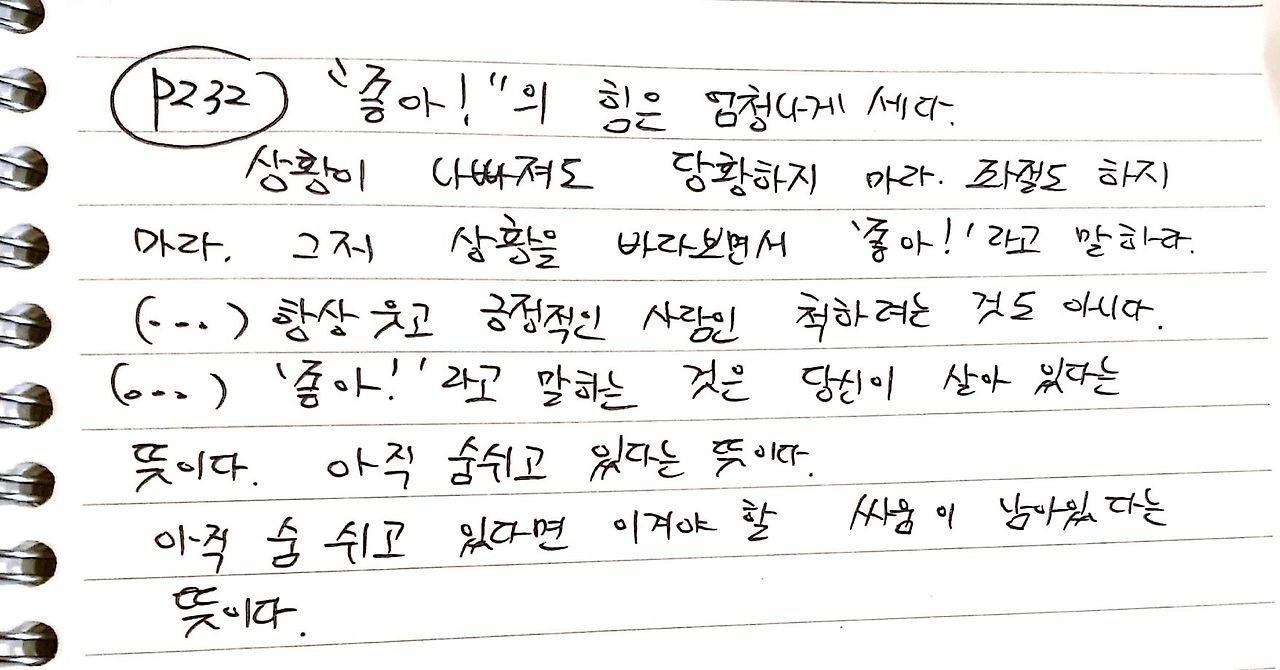 p232 "좋아!"의 힘은 엄청나게 세다.
상황이 나빠져도 당황하지 마라. 좌절도 하지
마라. 그저 상황을 바라보면서 '좋아!'라고 말하라.
(...) 항상 웃고 긍정적인 사람인 척하려는 것도 아니다.
(...) '좋아!'라고 말하는 것은 당신이 살아 있다는
뜻이다. 아직 숨쉬고 있다는 뜻이다.
아직 숨 쉬고 있다면 이겨야 할 싸움이 남아있다는
뜻이다.